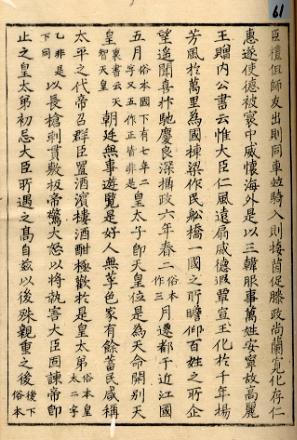 61
臣禮但師友出則同車並騎入則接茵促膝政尚蘭寬化存仁
惠遂使德被寰中威懷海外是以三韓服事萬姓安寧故高麗
王贈内公書云惟大臣仁風遠扇威德遐覃宣王化於千年揚
芳風於萬里為國棟梁作民舩橋一國之所瞻仰百姓之所企
望遥聞喜抃馳慶良深攝政六年春二俗本作三月遷都于近江國
五月俗本國下有七年二字又五作正皆非是皇太子即天皇位是為天命開別天
皇裏書云天皇朝廷無事遊覽是好人無菜色家有餘蓄民咸稱
太平之代帝召群臣置酒濱樓酒酣極歡於是皇太弟俗本皇太二字
乙非是下同以長槍刺貫敷板帝驚大怒以將執害大臣固諫帝即
止之皇太弟初忌大臣所遇之高自茲以後殊親重之後後下俗本